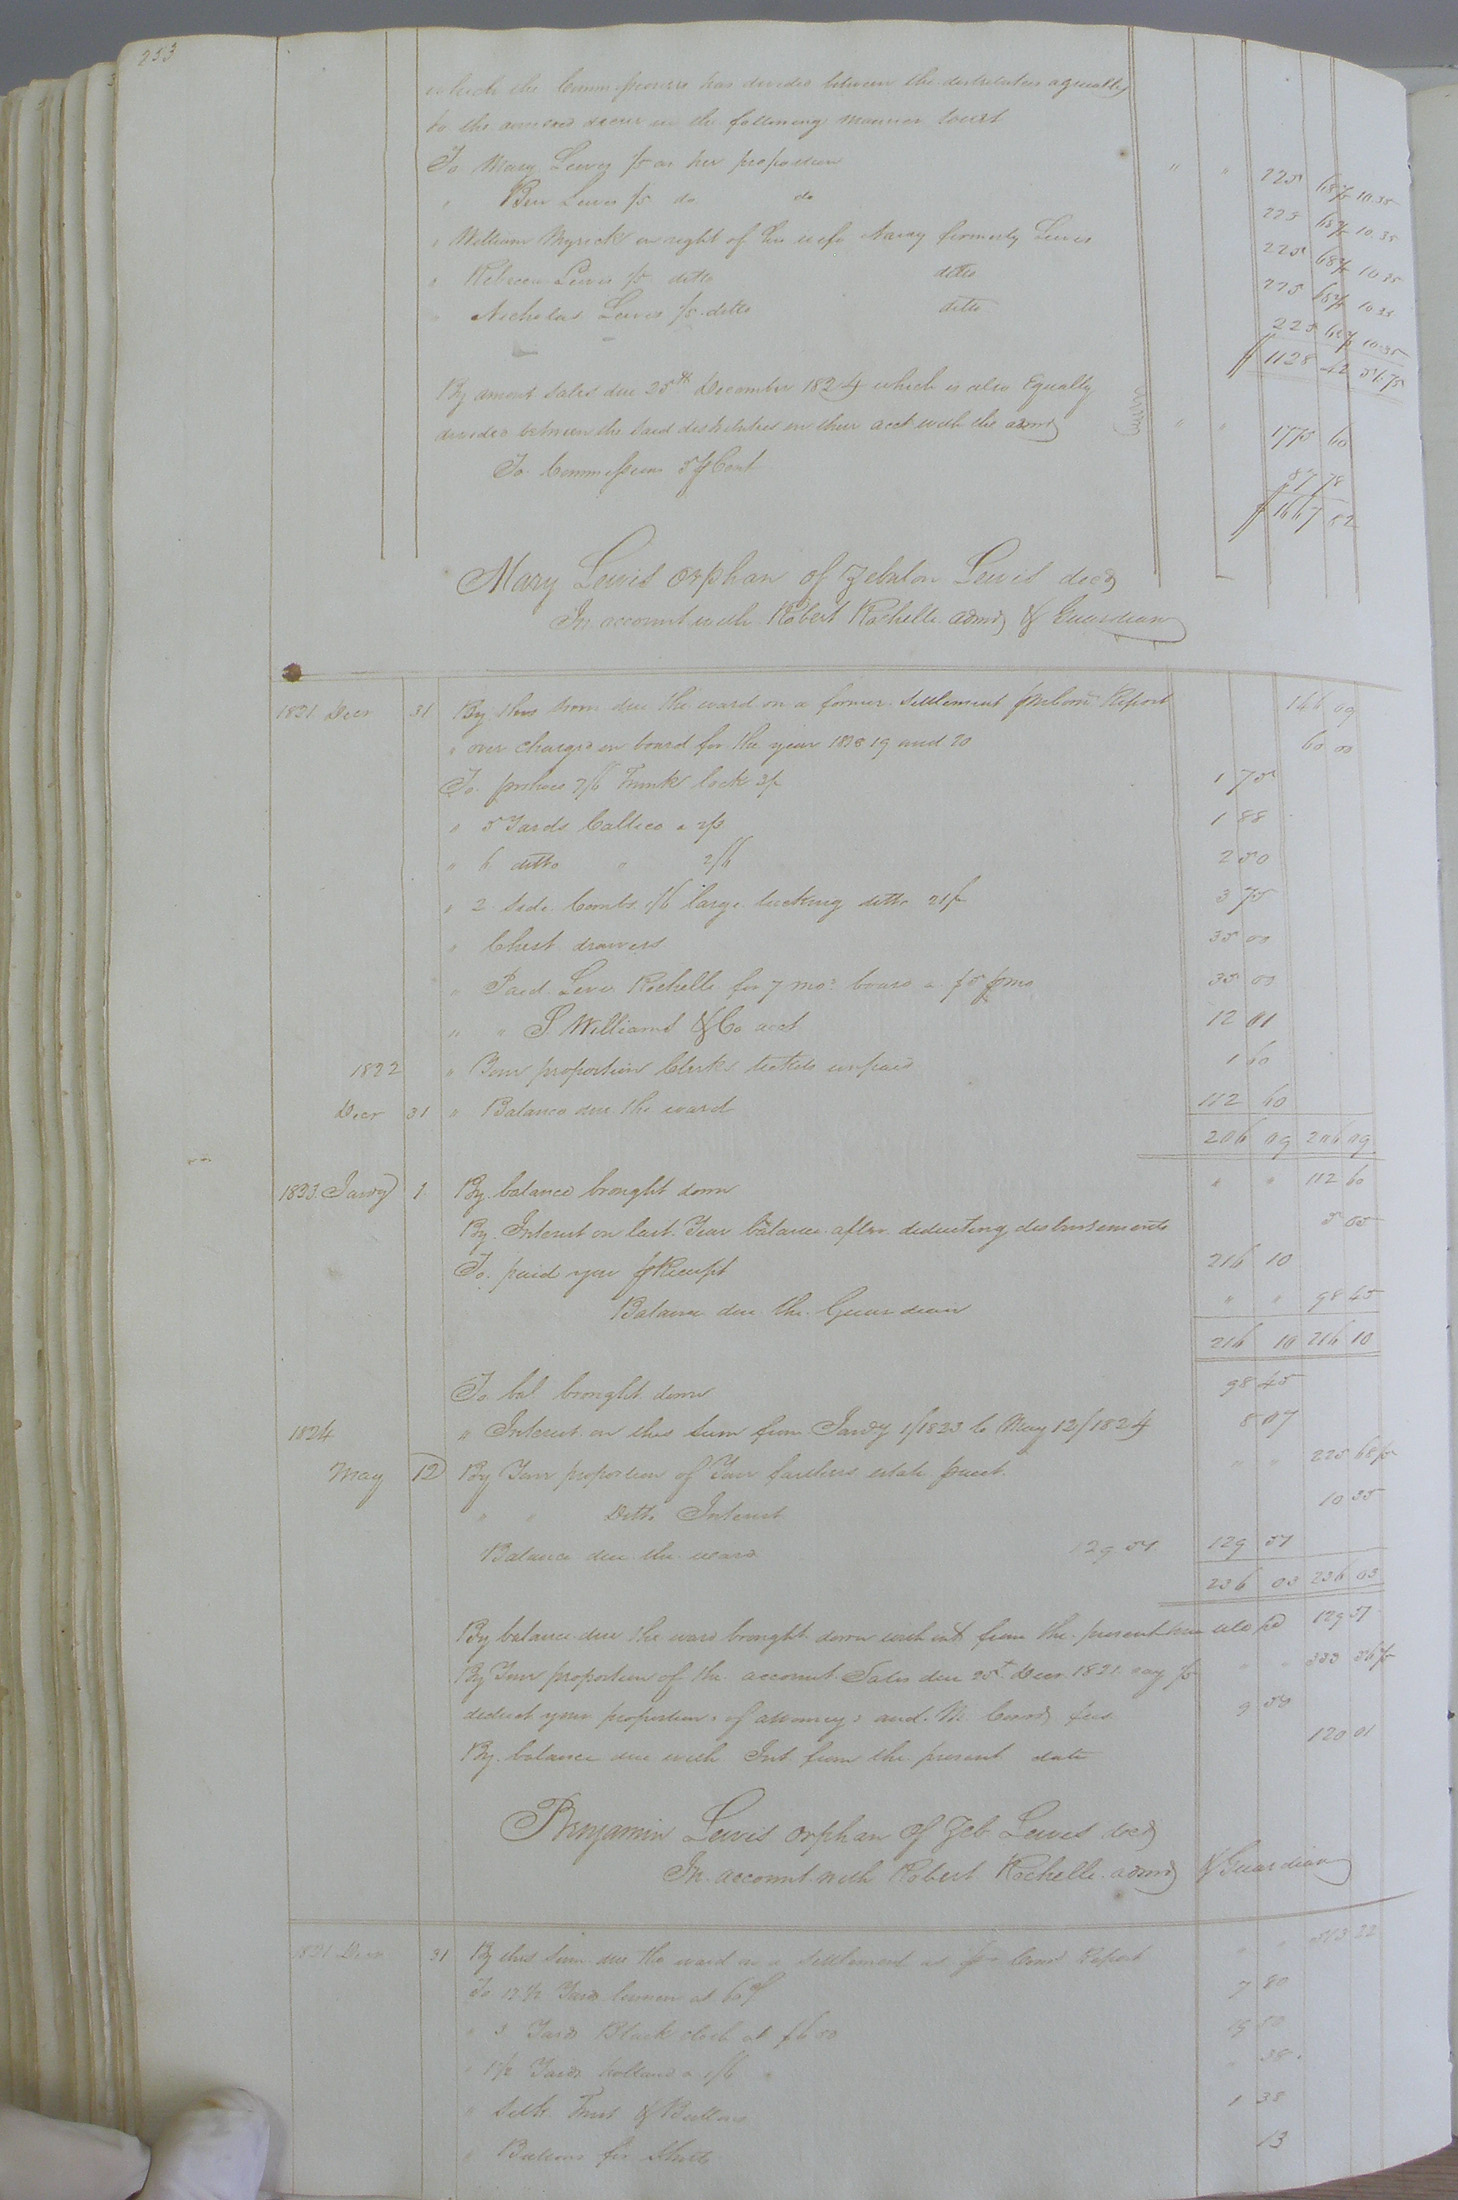 253
which the Commissioners has divided between the distributees agreeably
to the annexed decree in the following manner towit
To Mary Lewis 1/5 as her proportion " " 225 68 2/5 10.35
" Ben Lewis 1/5 do do 225 68 2/5 10.35
" William Myrick in right of his wife Nancy formerly Lewis 225 68 2/5 10.35
" Rebecca Lewis 1/5 ditto ditto 225 68 2/5 10.35
" Nicholas Lewis 1/5 ditto ditto 225 68 2/5 10.35
$ 1128 42 51.75
By amout Sales due 25th December 1824 which is also Equally
divided between the said distributees in their acct with the admr " " 1775 60
To Commissions 5 pr Cent 87 78
$ 1667 82
Mary Lewis orphan of Zebulon Lewis decd
In account with Robert Rochelle admr & Guardian
1821 Decr 31 By this sum due the ward on a former Settlement pr Report 146 09
" over charged on board for the year 1818 19 and 20 60 00
To Trunk lock 3/ 1 75
" 5 Yards Callico a 2/3 1 88
" 6 ditto " 2/6 2 50
" 2 Side Combs 1/6 large tucking ditto 21/ 3 75
" Chest drawers 35 00
" Paid Levi Rochelle for 7 mos board a $5 pr mo 35 00
" " S. Williams & Co acct 12 01
1822 " Your proportion Clerks tickets unpaid 1 60
Decr 31 " Balance due the ward 112 60
206 09 206 09
1823 Jany 1 By balance brought down " " 112 60
By Interest on last Year balance after deducting disbursements 5 05
To paid you pr Receipt 216 10
Balance due the Guardian " " 98 45
216 10 216 10
To bal brought down 98 45
1824 " Interest on this sum from Jany 1/1823 to May 12/1824 8 07
May 12 By Your proportion of Your fathers estate pr acct. " " 225 68 2/5
" " Ditto Interest 10 35
Balance due the ward 129 51 129 51
236 03 236 03
By balance due the ward brought down with int from the present 129 51
By Your proportion of the account Sales due 25th Decr 1821 say 1/5 " " 333 56 2/5
deduct your proportions of attorneys and fees 9 50
By balance due with Int from the present date 120 01
Benjamin Lewis orphan of Zeb Lewis decd
In account with Robert Rochelle admr & Guardian
1821 Decr 31 By this Sum due the ward on a Settlement as pr Comr Report " " 313 22
To 13 1/2 Yards at 60 7 80
" 3 Yards Black cloth at $6 50 19 50
" 1 1/2 Yards holland a 1/6 " 38
" Silk Twist & Buttons 1 38
" Buttons for Shirts 13